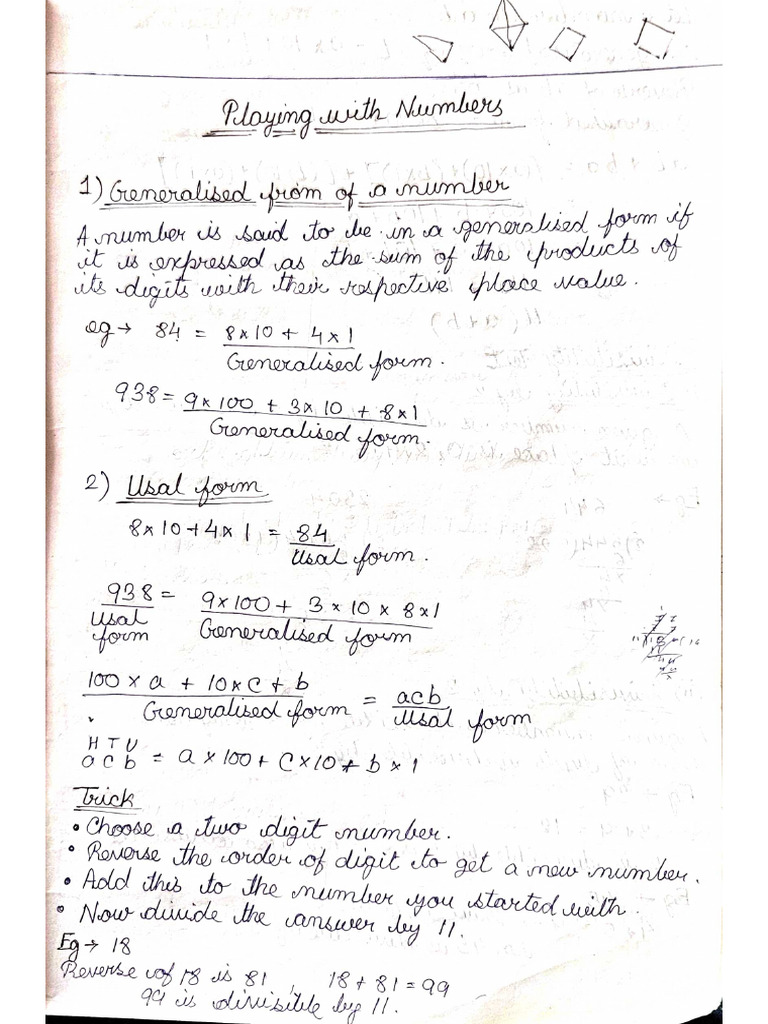 Playing with Numbers
1) Generalised from of a number
A number is said to be in a generalised form if
it is expressed as the sum of the products of
its digits with their respective place value.
eg → 84 = 8×10 + 4×1
Generalised form.
938 = 9×100 + 3×10 + 8×1
Generalised form.
2) Usal form
8×10+4×1 = 84
Usal form.
938 = 9×100+ 3×10 × 8×1
Usal form Generalised form
100×a + 10×c + b = acb
Generalised form Usal form
H T U
a c b = a×100+ c×10+ b×1
Trick
• Choose a two digit number.
• Reverse the order of digit to get a new number.
• Add this to the number you started with.
• Now divide the answer by 11.
Eg → 18
Reverse of 18 is 81, 18+81=99
99 is divisible by 11.